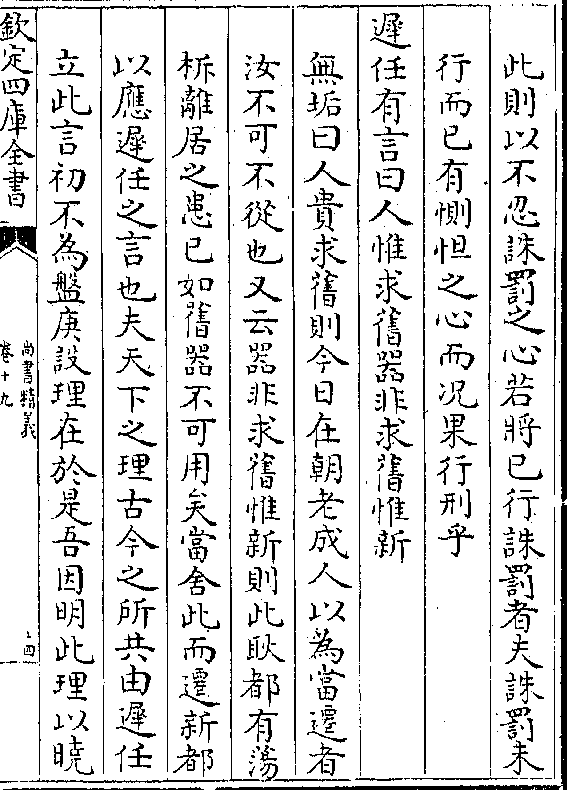 此則以不忍誅罰之心若將已行誅罰者夫誅罰未
行而已有惻怛之心而况果行刑乎
遲任有言曰人惟求舊器非求舊惟新
無垢曰人貴求舊則今日在朝老成人以為當遷者
汝不可不從也又云器非求舊惟新則此耿都有蕩
析離居之患已如舊器不可用矣當舍此而遷新都
以應遲任之言也夫天下之理古今之所共由遲任
立此言初不為盤庚設理在於是吾因明此理以曉
欽定四庫全書
尚書精義
卷十九
四